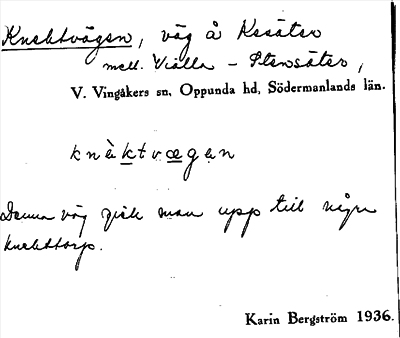 Knektvägen, väg å Kesäter
mell. Viala – Stensäter,
V. Vingåkers sn, Oppunda hd, Södermanlands län.
knäktvægen
Denna väg gick man upp till några
knekttorp.
Karin Bergström 1936.